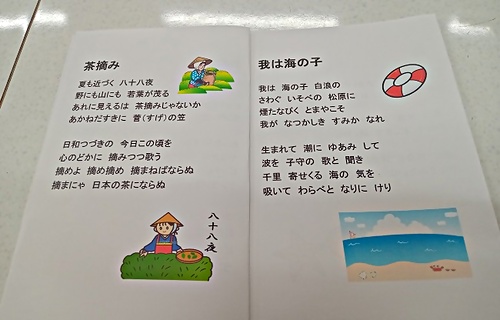 茶摘み
夏も近づく 八十八夜
野にも山にも 若葉が茂る
あれに見えるは 茶摘みじゃないか
あかねだすきに 菅(すげ)の笠
日和つづきの 今日この頃を
心のどかに 摘みつつ歌う
摘めよ 摘め摘め 摘まねばならぬ
摘まにゃ 日本の茶にならぬ
八十八夜
我は海の子
我は 海の子 白浪の
さわぐ いそべの 松原に
煙たなびく とまやこそ
我が なつかしき すみか なれ
生まれて 潮に ゆあみ して
波を 子守の 歌と 聞き
千里 寄せくる 海の 気を
吸いて わらべと なりに けり